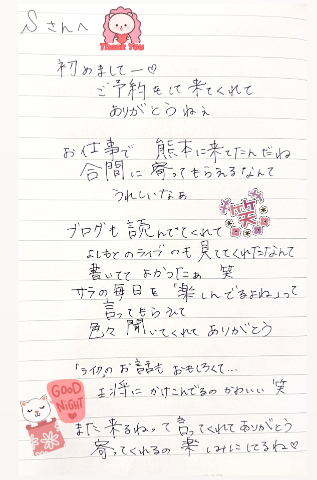 Sさんへ
THANK YOU
初めまして−♡
ご予約をして来てくれて
ありがとうねぇ
お仕事で 熊本に来てたんだね
合間に寄ってもらえるなんて
うれしいなぁ
笑
ブログも読んでてくれて
よしもとのライブのも見ててくれたなんて
書いてて よかったぁ 笑
サラの毎日を「楽しんでるよね」って
言ってもらえて
色々聞いてくれて ありがとう
「ライクの お話も おもしろくて…
王将に かけこんでるの かわいい 笑
GOOD
NIGHT
また来るねって言ってくれてありがとう
寄ってくれるの楽しみにしてるね♡